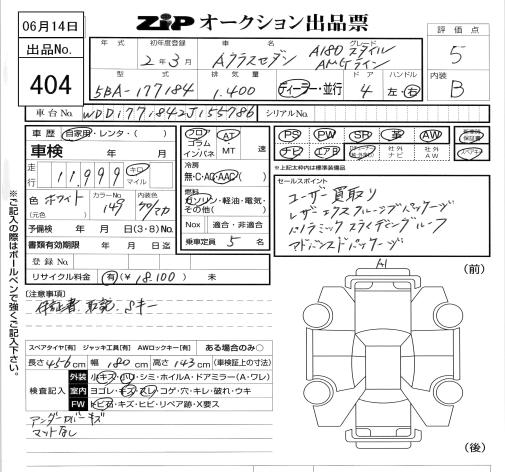 06月14日
出品No.
404
ZIP オークション出品票
評価点
5
内装
B
年式 初年度登録 車名 グレード
2年3月 Aクラスセダン A180 スタイル
AMGライン
型式 排気量 ドア ハンドル
5BA-177184 1.400 ディーラー・並行 4 左・右
車台No. WDD1771842J155786 シリアルNo.
車歴 自家用・レンタ・( )
車検 年 月
走行 11,999 キロ マイル
色 ホワイト カラーNo. 149
(元色)
予備検 年 月 日(3・8)No.
書類有効期限 年 月 日迄
登録No.
リサイクル料金 有(¥18.100) 未
フロア コラム インパネ AT・MT 速
冷房
無・C・AC・AAC( )
燃料
ガソリン・軽油・電気・その他( )
Nox 適合・非適合
乗車定員 5 名
PS PW SR 革 AW
ナビ エアB 社外ナビ 社外AW
*上記太枠内は標準装備品
セールスポイント
ユーザー買取り
レザーエクスクルーシブパッケージ
パノラミックスライディングルーフ
アドバンスドパッケージ
[注意事項]
保証書、取説、Sキー
スペアタイヤ[有] ジャッキ工具[有] AWロックキー[有] ある場合のみ○
長さ456cm 幅180cm 高さ143cm (車検証上の寸法)
検査記入
外装 小キズ・小凹・シミ・ホイルA・ドアミラー(A・ワレ)
室内 ヨゴレ・キズ・スレ・コゲ・穴・キレ・破れ・ウキ
FW トビ石・キズ・ヒビ・リペア跡・X要ス
アンダーカバーキズ
マットなし
(前)
(後)
※ご記入の際はボールペンで強くご記入下さい。